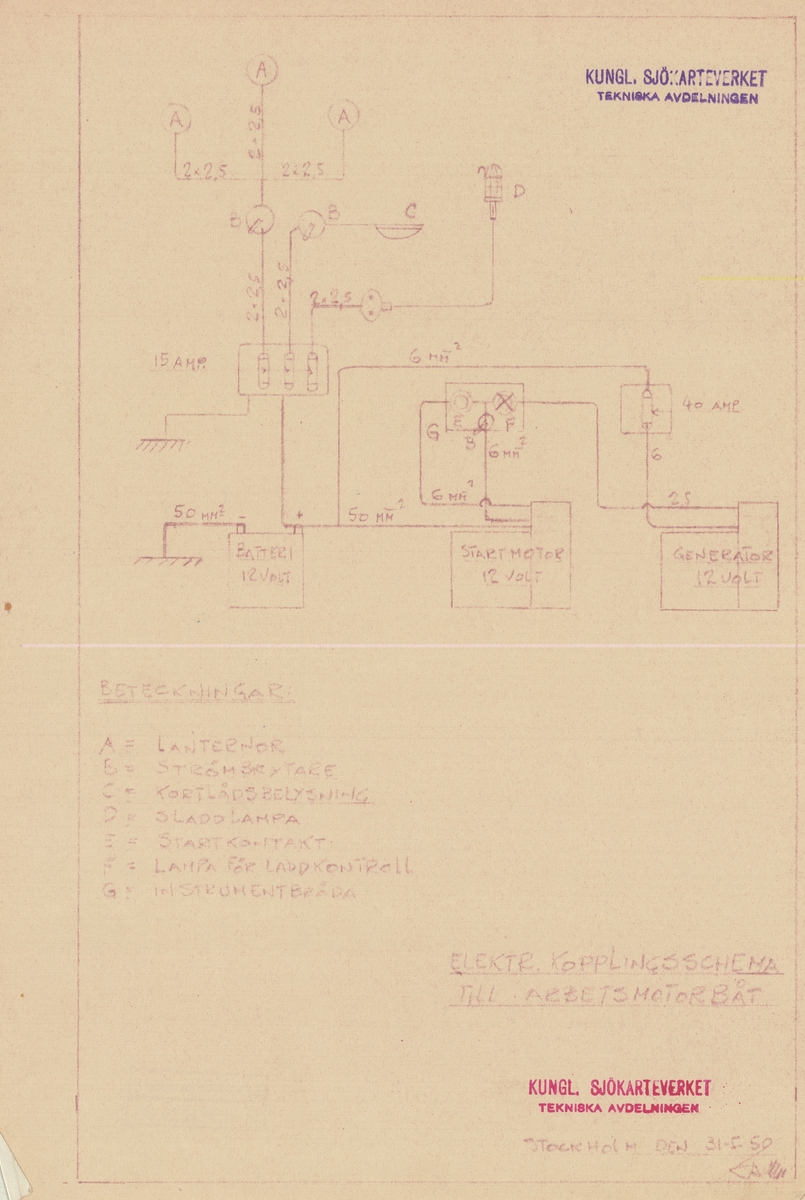 KUNGL. SJÖKARTEVERKET
TEKNISKA AVDELNINGEN
A
A
A
2×2,5
2×2,5
2×2,5
D
B
B
C
2×2,5
2×2,5
2×2,5
15 AMP.
6 MM²
40 AMP
G
E
F
B
6 MM²
6
50 MM²
-
+
50 MM²
6 MM²
2,5
BATTERI
12 VOLT
STARTMOTOR
12 VOLT
GENERATOR
12 VOLT
BETECKNINGAR:
A = LANTERNOR
B = STRÖMBRYTARE
C = KORTLÅDSBELYSNING
D = SLADDLAMPA
E = STARTKONTAKT
F = LAMPA FÖR LADDKONTROLL
G = INSTRUMENTBRÄDA
ELEKTR. KOPPLINGSSCHEMA
TILL ARBETSMOTORBÅT
KUNGL. SJÖKARTEVERKET
TEKNISKA AVDELNINGEN
STOCKHOLM DEN 31-5-50